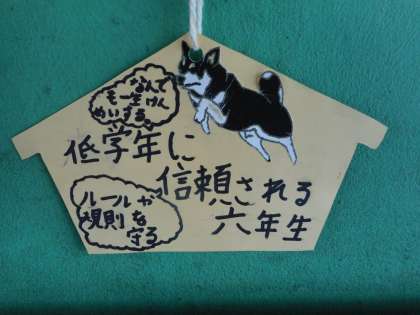 なんで
も一生けん
めいする
低学年に
信頼される
六年生
ルールか
規則を
守る